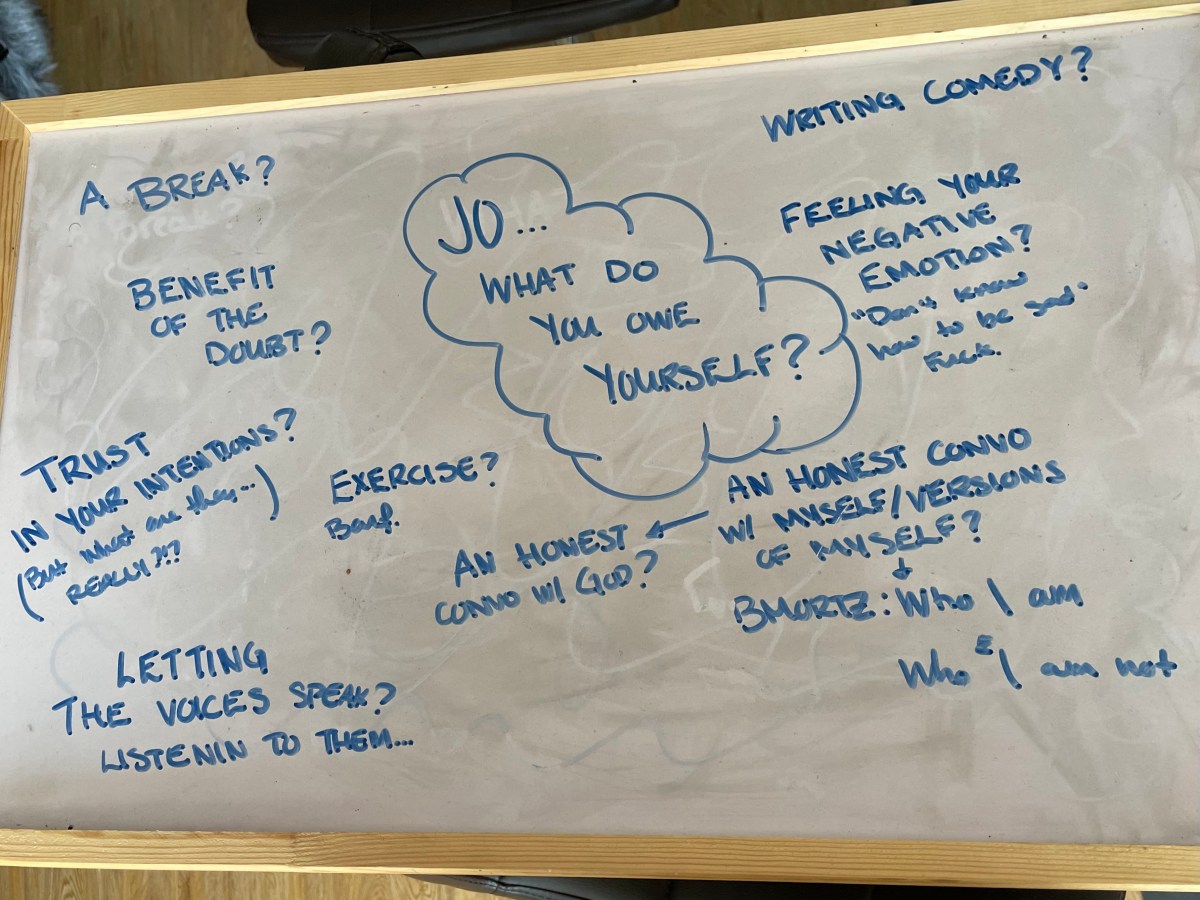 WRITING COMEDY?
A BREAK?
Break?
JO...
WHAT DO
YOU OWE
YOURSELF?
FEELING YOUR
NEGATIVE
EMOTION?
"Don't know
how to be sad"
Fuck.
BENEFIT
OF THE
DOUBT?
TRUST
IN YOUR INTENTIONS?
(But what are they...)
REALLY?!?
EXERCISE?
Barf.
AN HONEST CONVO
W/ MYSELF/VERSIONS
OF MYSELF?
AN HONEST
CONVO W/ GOD?
BMORTZ: Who I am
&
Who I am not
LETTING
THE VOICES SPEAK?
LISTENIN TO THEM...